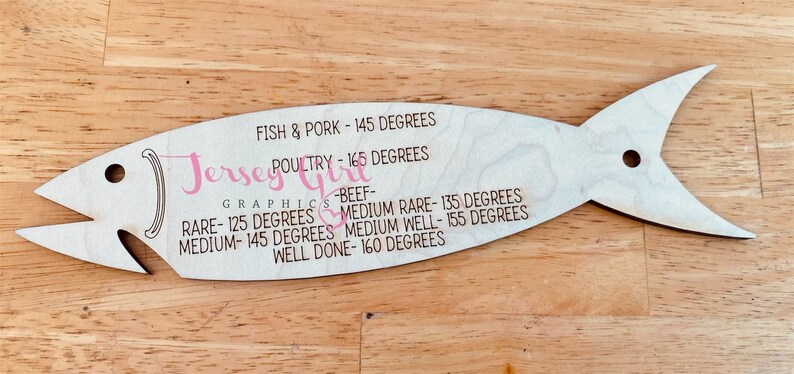 FISH & PORK - 145 DEGREES
POULTRY - 165 DEGREES
Jersey Girl
GRAPHICS
-BEEF-
RARE- 125 DEGREES MEDIUM RARE- 135 DEGREES
MEDIUM- 145 DEGREES MEDIUM WELL- 155 DEGREES
WELL DONE- 160 DEGREES